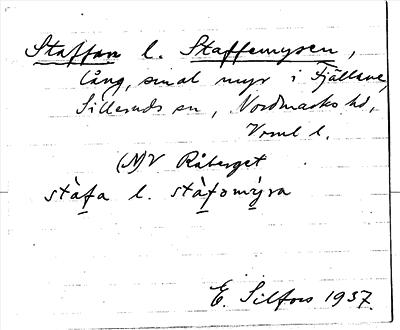 Staffan l. Staffemysen,
lång, smal myr i Fjällane,
Silleruds sn, Nordmarks hd,
Vrml l.
(N)V Råberget
stàfa l. stàfomýra
E. Silfors 1937.